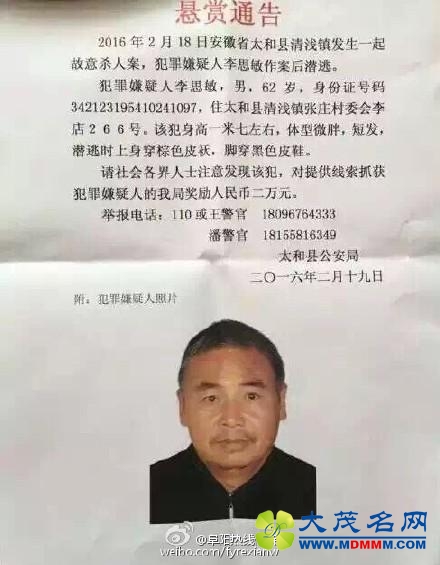 悬赏通告
2016年2月18日安徽省太和县清浅镇发生一起
故意杀人案，犯罪嫌疑人李思敏作案后潜逃。
犯罪嫌疑人李思敏，男，62岁，身份证号码
342123195410241097，住太和县清浅镇张庄村委会李
店266号。该犯身高一米七左右，体型微胖，短发，
潜逃时上身穿棕色皮袄，脚穿黑色皮鞋。
请社会各界人士注意发现该犯，对提供线索抓获
犯罪嫌疑人的我局奖励人民币二万元。
举报电话：110或王警官 18096764333
潘警官 18155816349
太和县公安局
二〇一六年二月十九日
附：犯罪嫌疑人照片
@阜阳热线
weibo.com/fyrexianw
大茂名网
WWW.MDMMM.COM